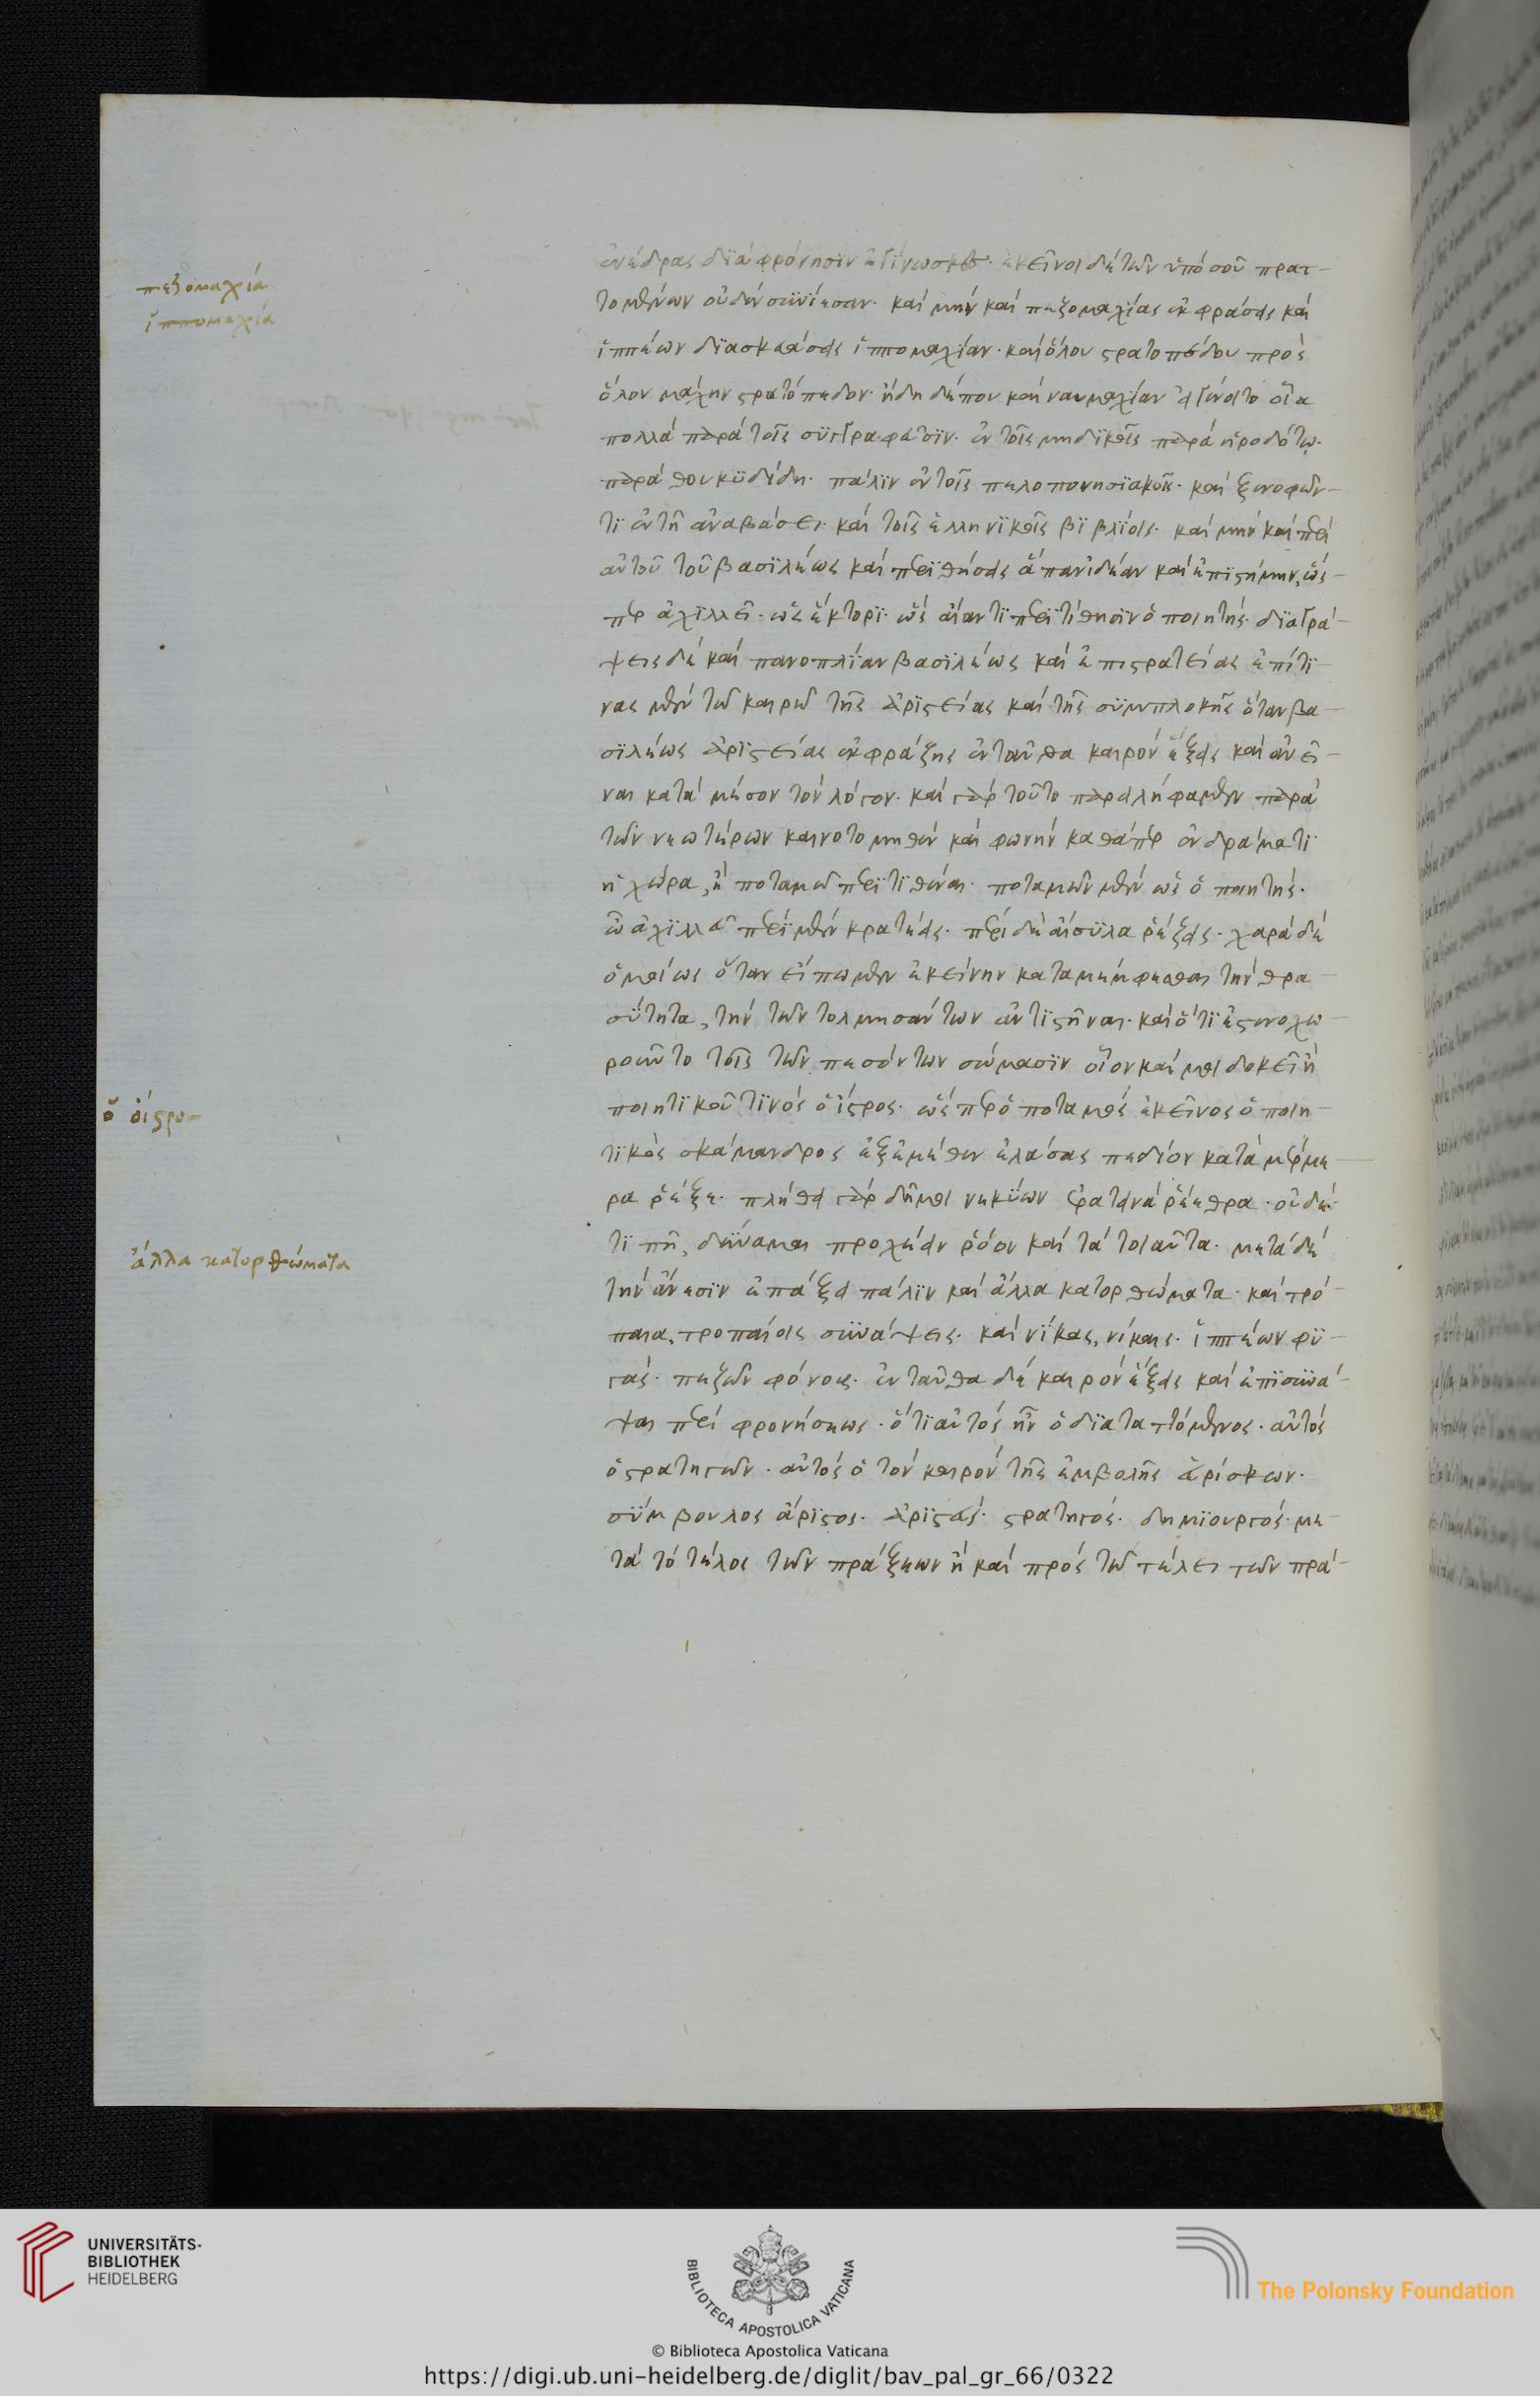 πεζομαχία
ἱππομαχία
ἐνέδρας διὰ φρόνησιν ἐγίνωσκες· ἐκεῖνοι δὲ τῶν ὑπὸ σοῦ πρατ-
τομένων οὐδὲν συνίεσαν· καὶ μὴν καὶ πεζομαχίας ἐκφράσεις καὶ
ἱππέων διασκευάσεις ἱππομαχίαν· καὶ ὅλου στρατοπέδου πρὸς
ὅλον μάχην στρατόπεδον· ἤδη δέ που καὶ ναυμαχίαν εἰ γένοιτο οἷα
πολλὰ παρὰ τοῖς συγγραφεῦσιν· ἐν τοῖς μηδικοῖς παρὰ ἡροδότῳ·
παρὰ θουκυδίδῃ· πάλιν ἐν τοῖς πελοποννησιακοῖς· καὶ ξενοφῶν-
τι ἐν τῇ ἀναβάσει· καὶ τοῖς ἑλληνικοῖς βιβλίοις· καὶ μὴν καὶ περὶ
αὐτοῦ τοῦ βασιλέως καὶ περιθήσεις ἅπαν ἰδέαν καὶ ἐπιστήμην, ὥσ-
περ ἀχιλλεῖ· ὡς ἕκτορι· ὡς αἴαντι περιτίθησιν ὁ ποιητής· διαγρά-
ψεις δὲ καὶ πανοπλίαν βασιλέως καὶ ἐπιστρατείας ἐπί τι-
νας μὲν τῷ καιρῷ τῆς ἀριστείας καὶ τῆς συμπλοκῆς ὅταν βα-
σιλέως ἀριστείας ἐκφράζῃς ἐνταῦθα καιρὸν ἕξεις καὶ ἀνεῖ-
ναι κατὰ μέσον τὸν λόγον· καὶ γὰρ τοῦτο παρειλήφαμεν παρὰ
τῶν νεωτέρων καινοτομηθὲν καὶ φωνὴν καθάπερ ἐν δράματι
ἢ χώρα, ἢ ποταμῷ περιτιθέναι· ποταμῶν μὲν ὡς ὁ ποιητής·
ὦ ἀχιλλεῦ περὶ μὲν κρατέεις· περὶ δὲ αἴσυλα ῥέζεις· χώρα δὲ
ὁμοίως ὅταν εἴπωμεν ἐκείνην καταμέμφεσθαι τὴν θρα-
σύτητα, τὴν τῶν τολμησάντων ἀντιστῆναι· καὶ ὅτι ἐστενοχω-
ροῦντο τοῖς τῶν πεσόντων σώμασιν οἷον καί μοι δοκεῖ ἢ
ὁ οἶστρο-
ποιητικοῦ τινὸς ὁ ἴστρος· ὥσπερ ὁ ποταμὸς ἐκεῖνος ὁ ποιη-
τικὸς σκάμανδρος ἐξ ἐμέθεν ἐλάσας πεδίον κατὰ μέρμε-
ρα ῥέζε· πλήθει γὰρ δή μοι νεκύων ἐρατεινὰ ῥέεθρα· οὐδέ
ἄλλα κατορθώματα
τι πῆ, δύναμαι προχέειν ῥόον καὶ τὰ τοιαῦτα· μετὰ δὲ
τὴν ἄνεσιν ἐπάξει πάλιν καὶ ἄλλα κατορθώματα· καὶ τρό-
παια, τροπαίοις συνάψεις· καὶ νίκας, νίκαις· ἱππέων φυ-
γάς· πεζῶν φόνους· ἐνταῦθα δὲ καιρὸν ἕξεις καὶ ἐπισυνά-
ψαι περὶ φρονήσεως· ὅτι αὐτὸς ἦν ὁ διαταττόμενος· αὐτὸς
ὁ στρατηγῶν· αὐτὸς ὁ τὸν καιρὸν τῆς ἐμβολῆς εὑρίσκων·
σύμβουλος ἄριστος· ἀριστεύς· στρατηγός· δημιουργός· με-
τὰ τὸ τέλος τῶν πράξεων ἢ καὶ πρὸς τῷ τέλει τῶν πρά-
UNIVERSITÄTS-
BIBLIOTHEK
HEIDELBERG
BIBLIOTECA APOSTOLICA VATICANA
© Biblioteca Apostolica Vaticana
The Polonsky Foundation
https://digi.ub.uni-heidelberg.de/diglit/bav_pal_gr_66/0322